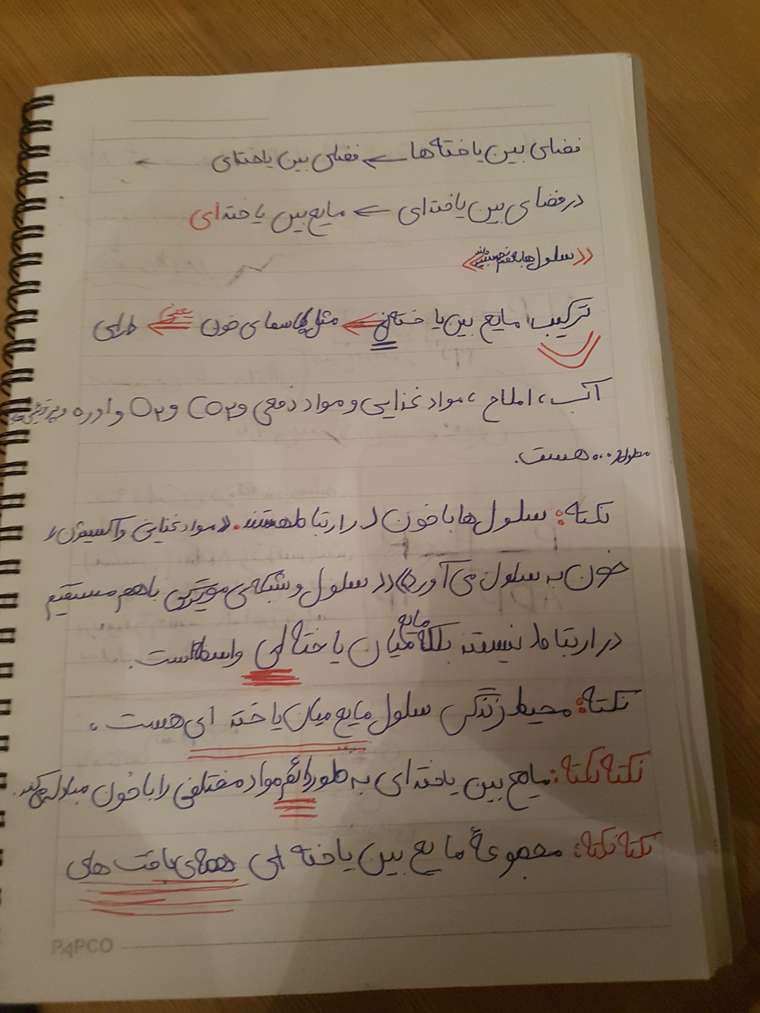 فضای بین یاخته ها ← فضای بین یاخته‌ای ←
در فضای بین یاخته ای ← مایع بین یاخته ای
ترکیب مایع بین یاخته‌ای ← مثل پلاسمای خون ← یعنی دارای
آب، املاح، مواد غذایی و مواد دفعی و CO2 و O2 و اوره و
... هست.
نکته: سلول ها با خون در ارتباط هستند. «مواد غذایی و اکسیژن از
خون به سلول می آورد» «سلول و شبکه‌ی مویرگی با هم مستقیم
در ارتباط نیستند بلکه مایع میان یاخته ای واسطه است.
نکته: محیط زندگی سلول مایع میان یاخته ای هست.
نکته نکته: مایع بین یاخته ای به طور دائم مواد مختلفی را با خون مبادله می کند.
نکته نکته: مجموعهٔ مایع بین یاخته ای همه‌ی بافت های
PAPCO